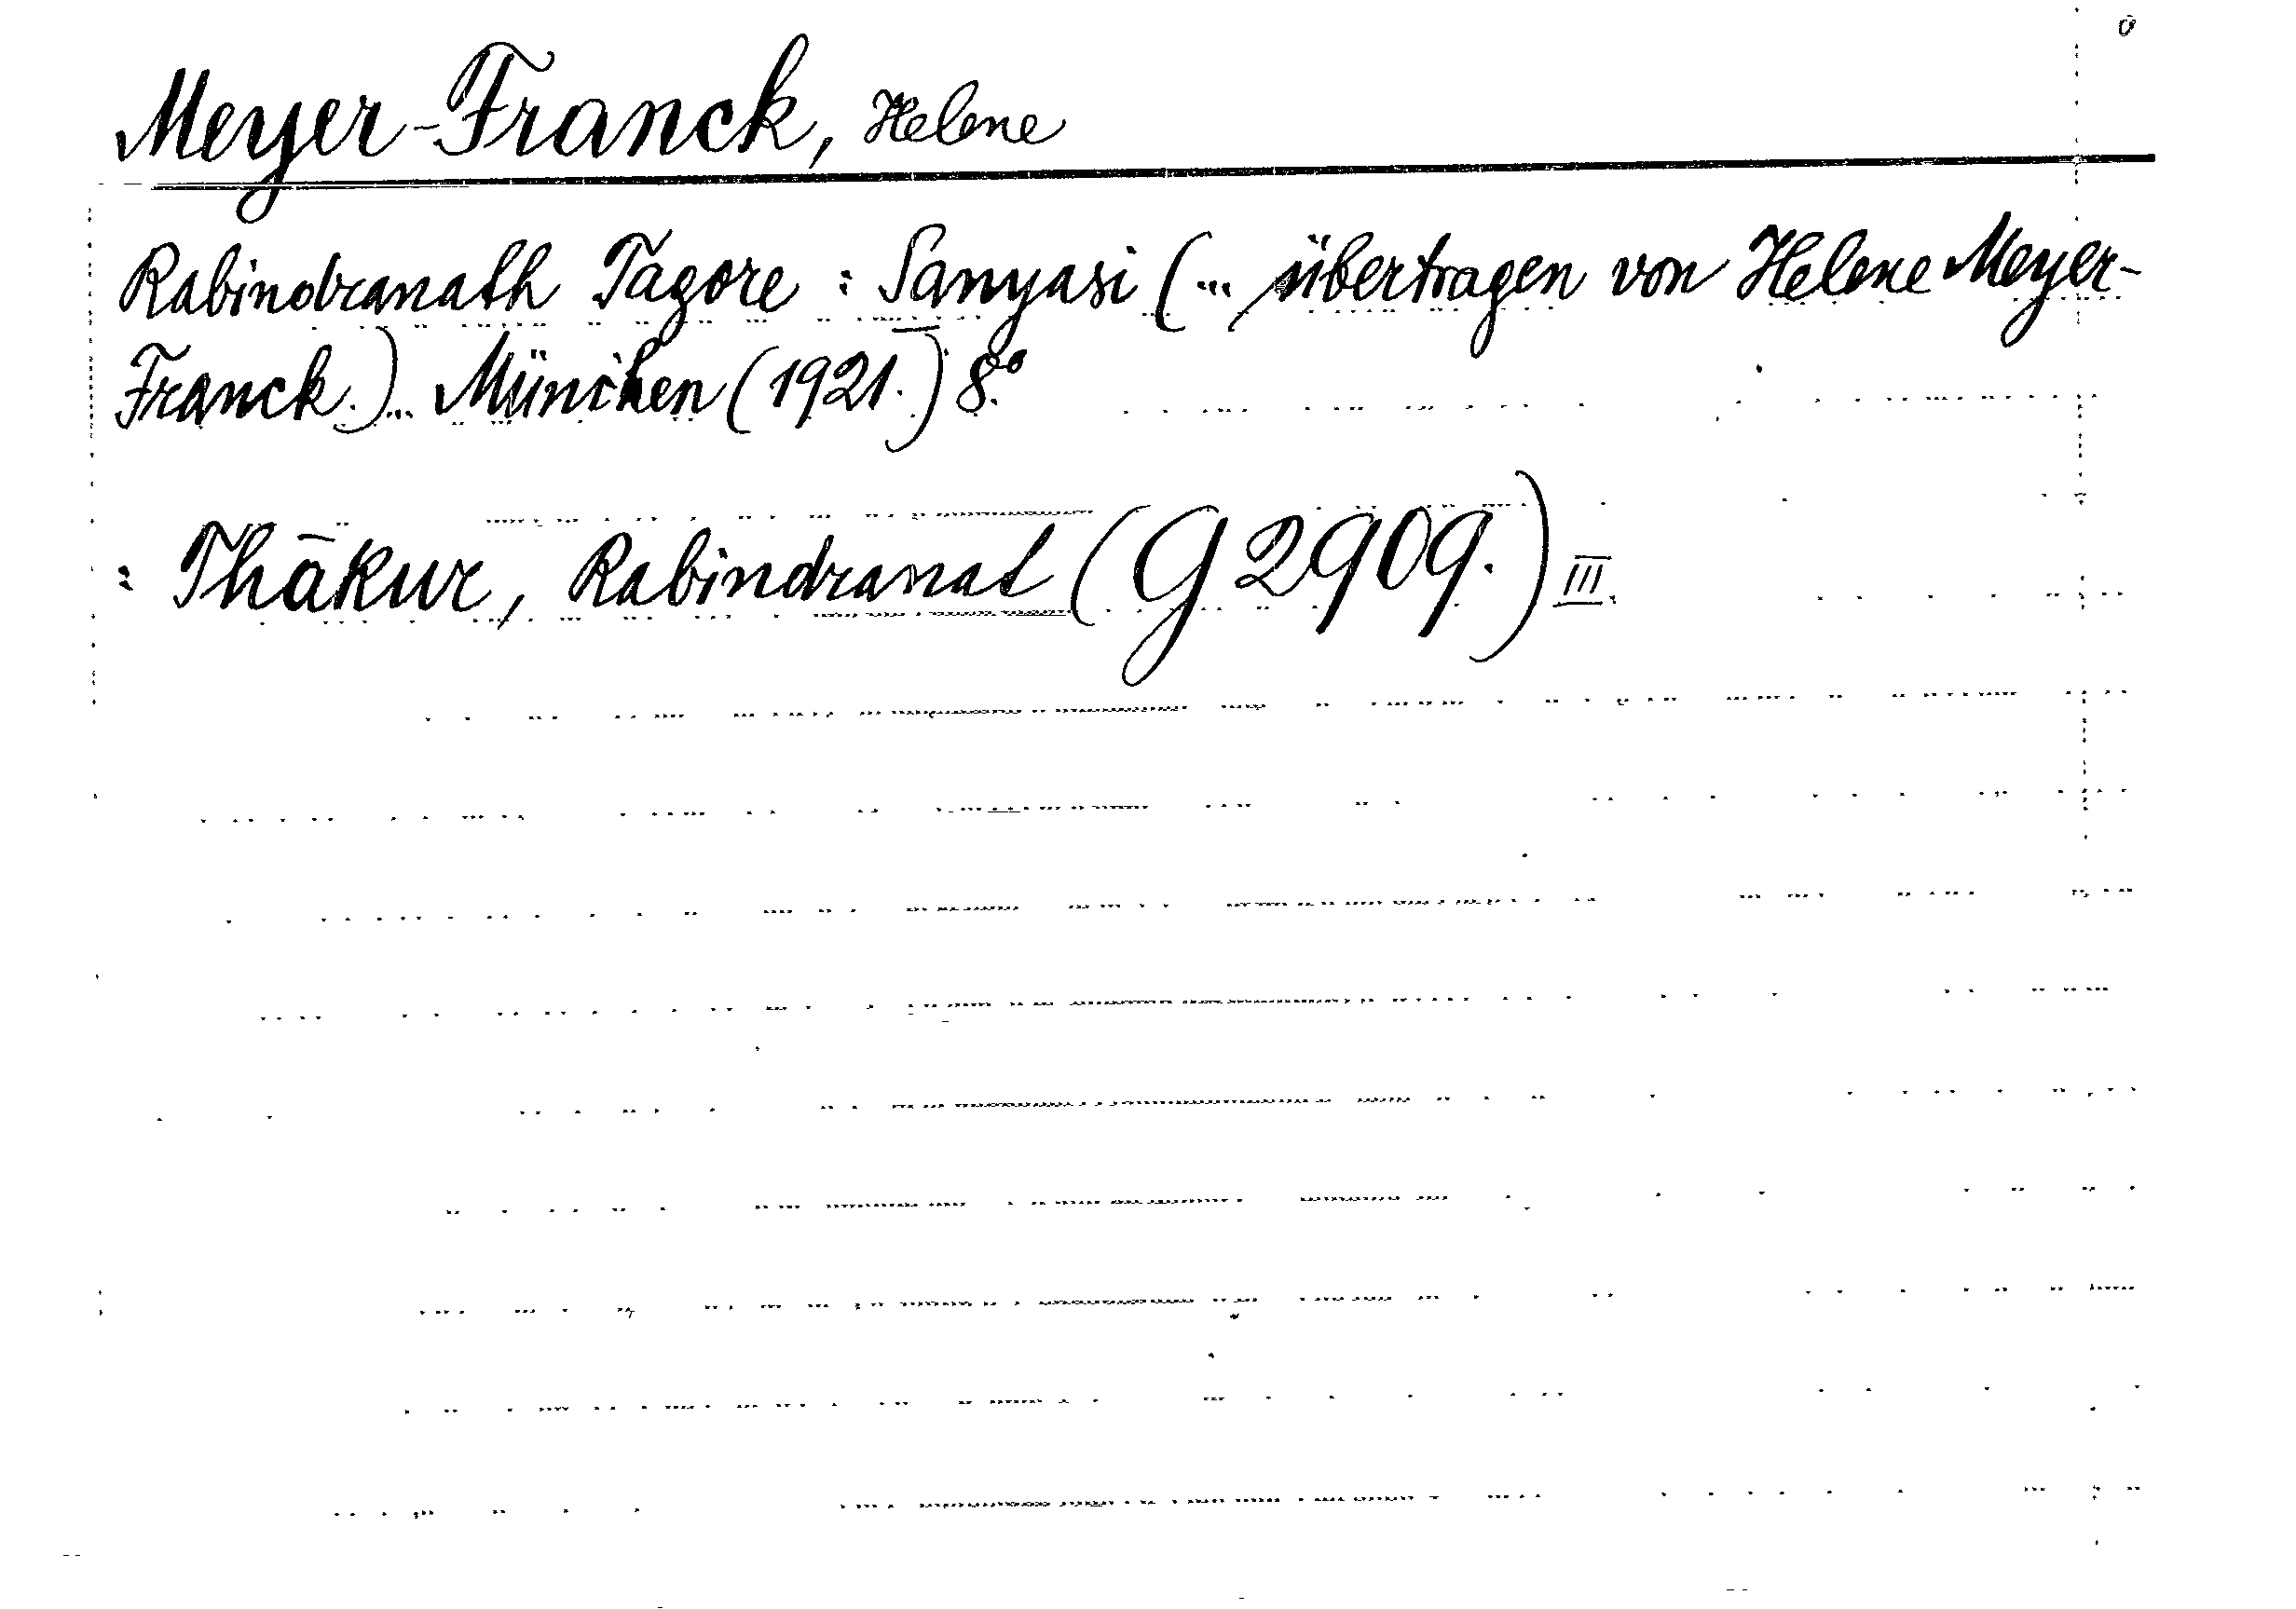 Meyer-Franck, Helene
Rabindranath Tagore : Sanyasi (... übertragen von Helene Meyer-
Franck.)... München (1921.) 8.°
: Thākur, Rabindranat (G 2909.) III.